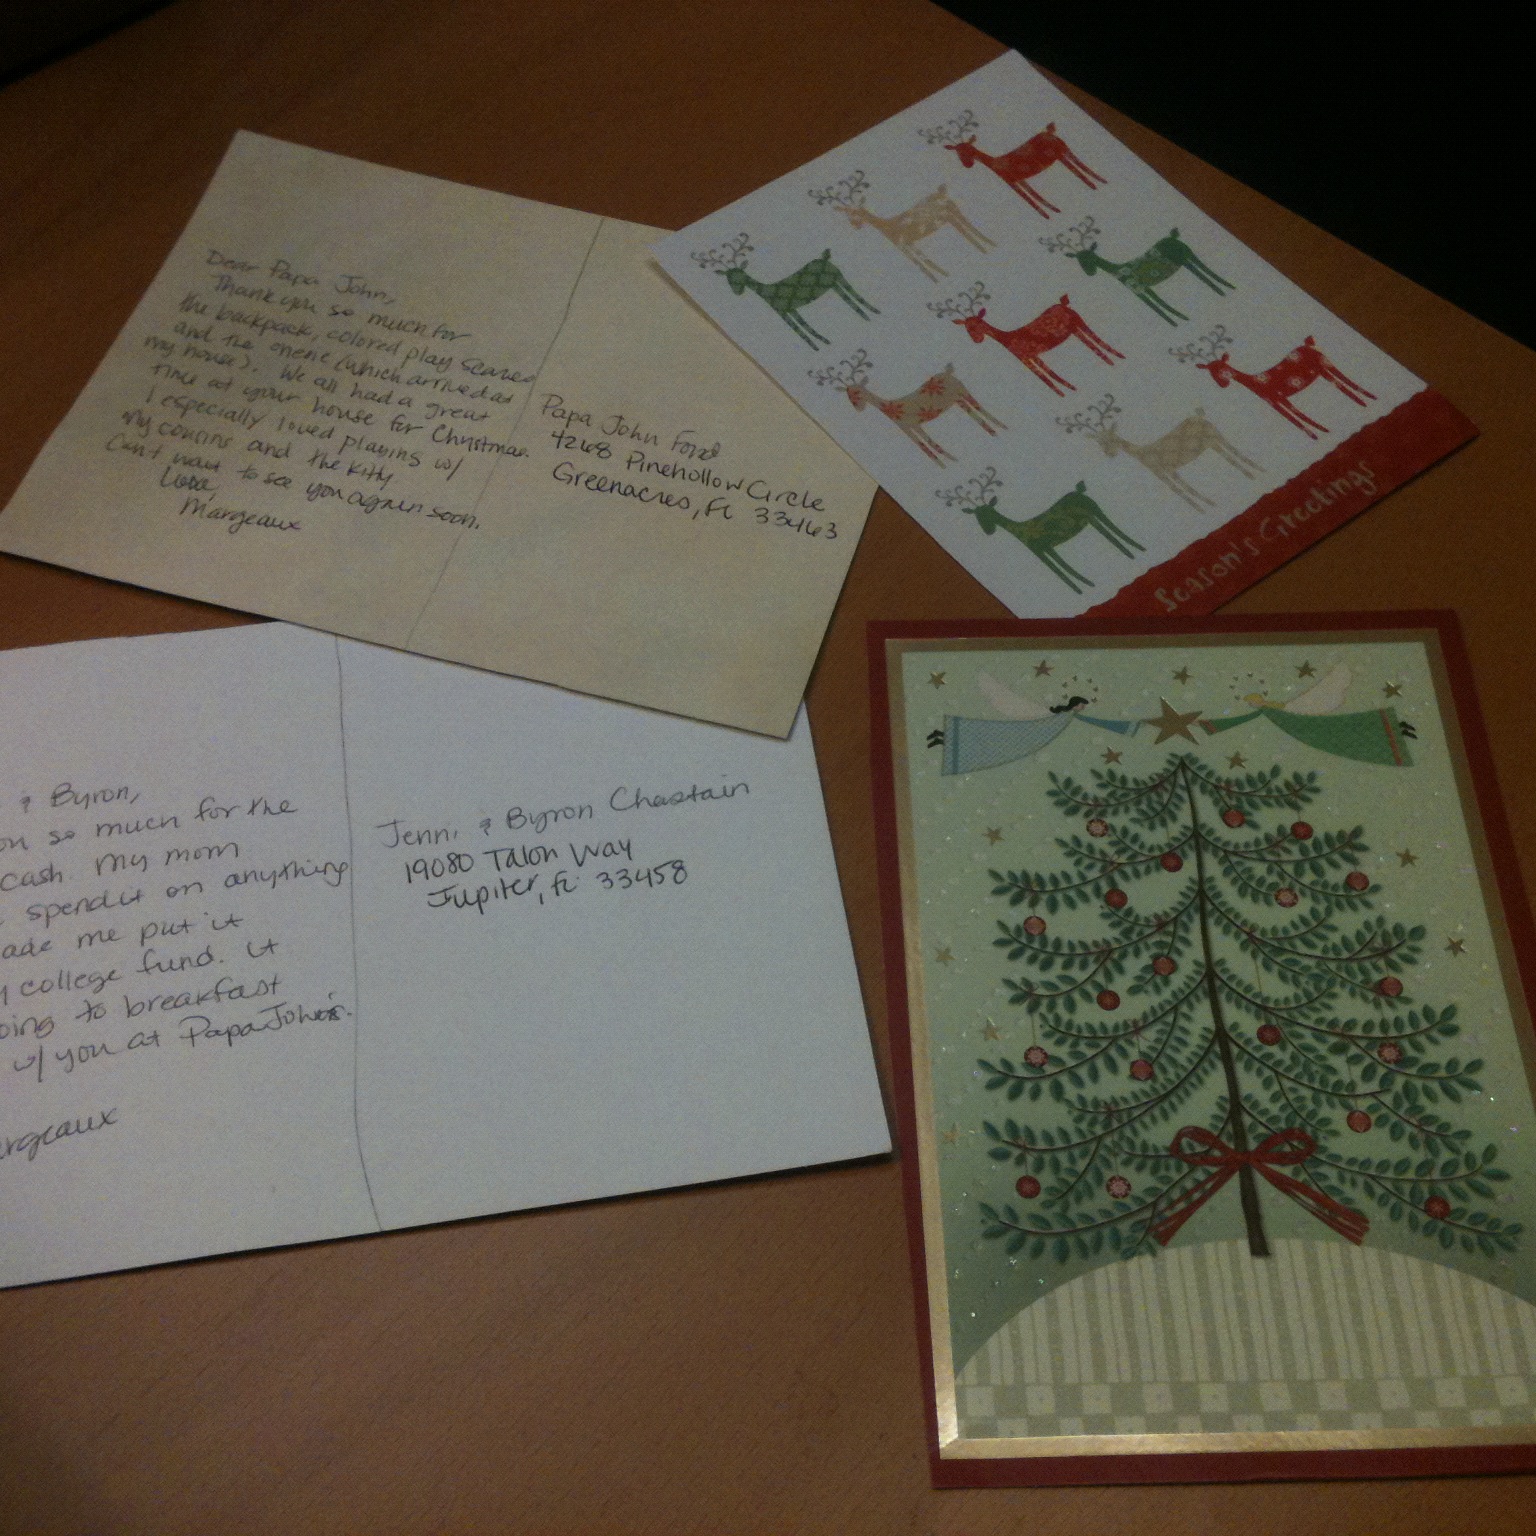 Dear Papa John,
Thank you so much for
the backpack, colored play
and the (which arrived at
my house). We all had a great
time at your house for Christmas.
I especially loved playing w/
my cousins and the kitty
Can't wait to see you again soon.
Love,
Margeaux
Papa John Ford
4268 Pinehollow Circle
Greenacres, FL 33463
Season's Greetings
& Byron,
so much for the
cash. my mom
spend it on anything
me put it
college fund. it
to breakfast
w/ you at Papa John's.
Jenni & Byron Chastain
19080 Talon Way
Jupiter, FL 33458